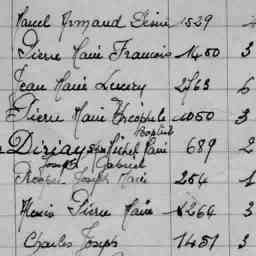 Marcel Armand Désiré 1529
Pierre Marie Francois 1450 3
Jean Marie 2763 6
Pierre Marie Théophile 1050 3
Baptiste
Michel Marie 689 2
Joseph Gabriel
Prosper Joseph Marie 254 1
Alexis Pierre Marie 1264 3
Charles Joseph 1451 3